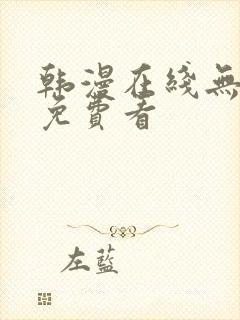 韩漫在綫無
免費看
左蓝